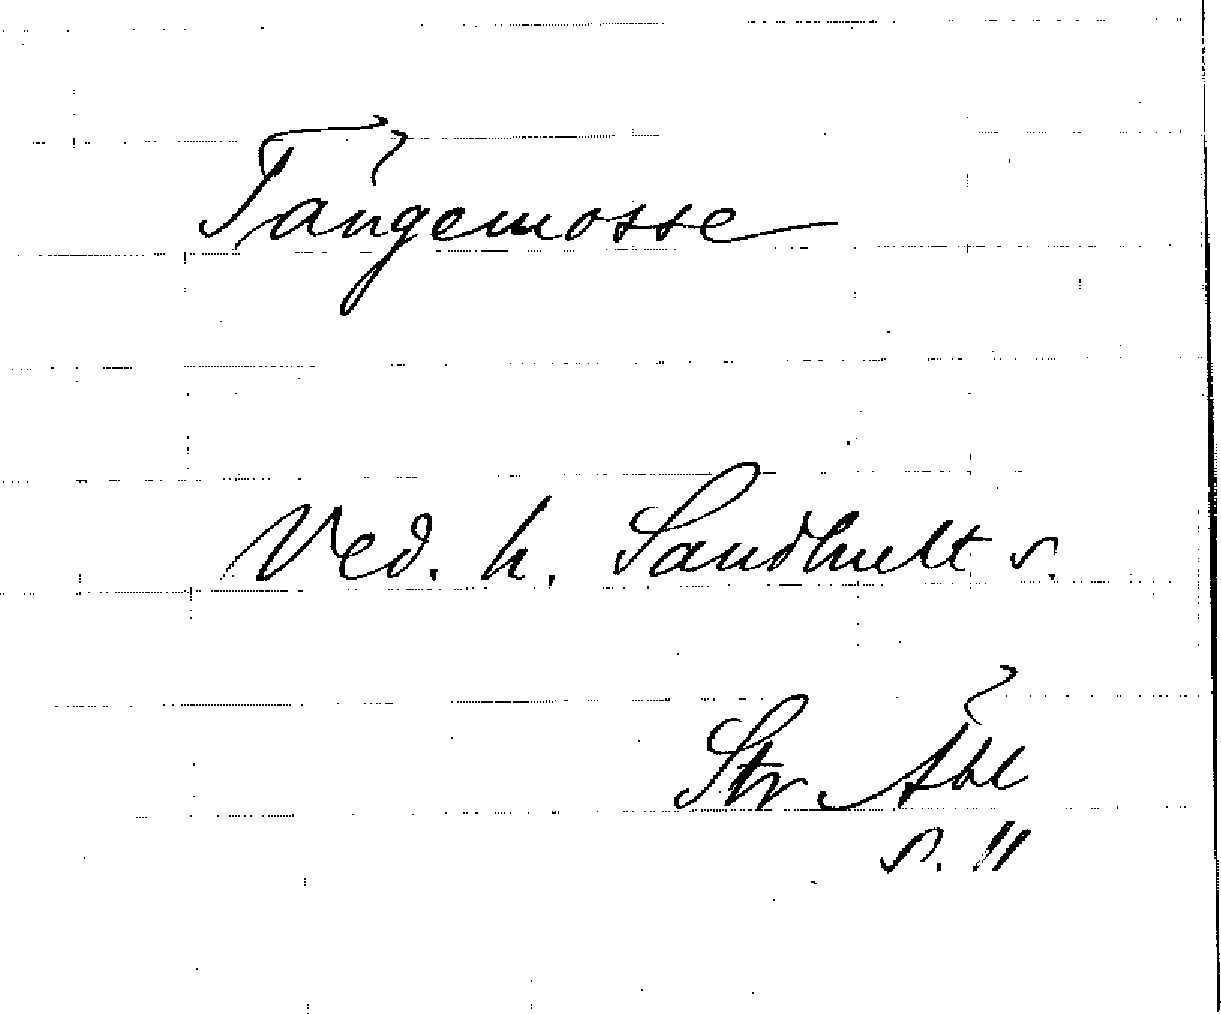 Tångemosse
Ved. h. Sandhult s.
Str Åbl
s. 11